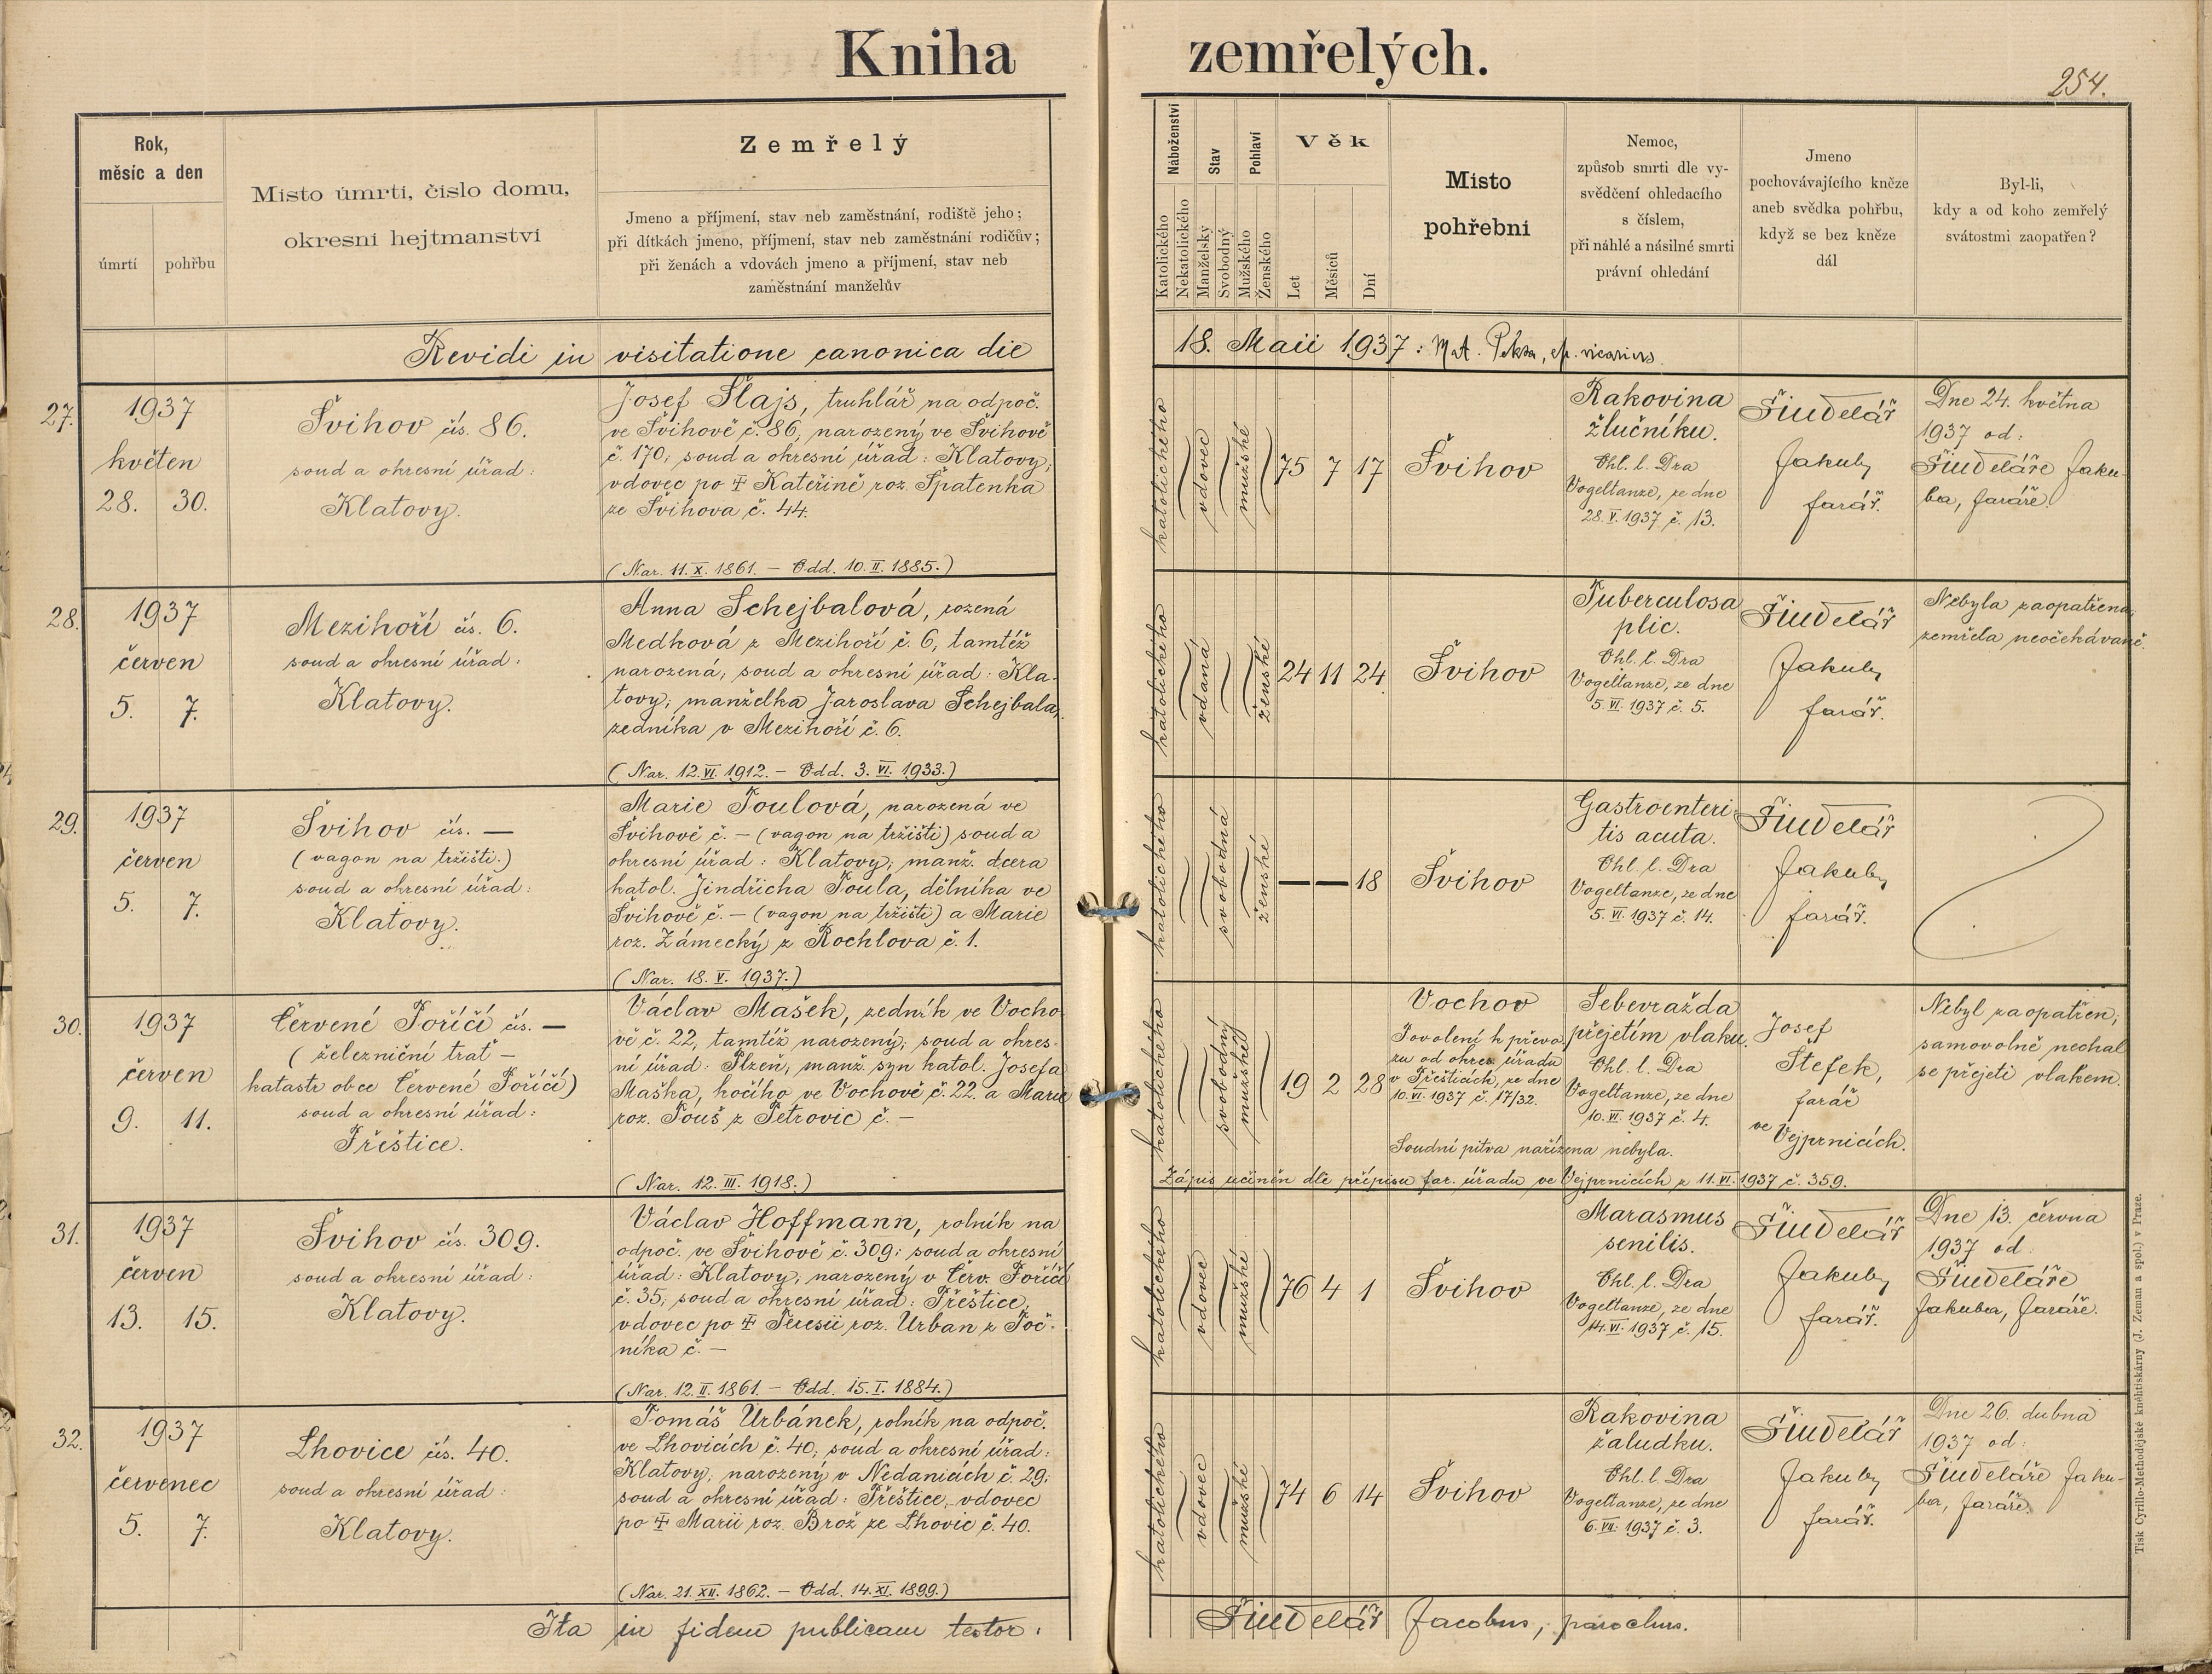 Kniha zemřelých.
254.
Rok,
měsíc a den
úmrtí
pohřbu
Místo úmrtí, číslo domu,
okresní hejtmanství
Zemřelý
Jmeno a příjmení, stav neb zaměstnání, rodiště jeho;
při dítkách jmeno, příjmení, stav neb zaměstnání rodičův;
při ženách a vdovách jmeno a příjmení, stav neb
zaměstnání manželův
Náboženství
Katolického
Nekatolického
Stav
Manželský
Svobodný
Pohlaví
Mužského
Ženského
Věk
Let
Měsíců
Dní
Místo
pohřební
Nemoc,
způsob smrti dle vy-
svědčení ohledacího
s číslem,
při náhlé a násilné smrti
právní ohledání
Jmeno
pochovávajícího kněze
aneb svědka pohřbu,
když se bez kněze
dál
Byl-li,
kdy a od koho zemřelý
svátostmi zaopatřen?
Revidi in visitatione canonica die 18. Maii 1937: Mat. Peksa, ep. vicarius.
27.
1937
květen
28. 30.
Švihov čís. 86.
soud a okresní úřad:
Klatovy.
Josef Šlajs, truhlář na odpoč.
ve Švihově č. 86, narozený ve Švihově
č. 170; soud a okresní úřad: Klatovy;
vdovec po ‡ Kateřině roz. Špatenka
ze Švihova č. 44.
(Nar. 11. X. 1861. – Odd. 10. II. 1885.)
katolického
vdovec
mužské
75 7 17
Švihov
Rakovina
žlučníku.
Ohl. l. Dra
Vogeltanze, ze dne
28. V. 1937 č. 13.
Šindelář
Jakub,
farář.
Dne 24. května
1937 od:
Šindeláře Jaku-
ba, faráře.
28.
1937
červen
5. 7.
Mezihoří čís. 6.
soud a okresní úřad:
Klatovy.
Anna Schejbalová, rozená
Medková z Mezihoří č. 6, tamtéž
narozená; soud a okresní úřad: Kla-
tovy; manželka Jaroslava Schejbala,
zedníka v Mezihoří č. 6.
(Nar. 12. VI. 1912. – Odd. 3. VI. 1933.)
katolického
vdaná
ženské
24 11 24
Švihov
Tuberculosa
plic.
Ohl. l. Dra
Vogeltanze, ze dne
5. VI. 1937 č. 5.
Šindelář
Jakub,
farář.
Nebyla zaopatřena,
zemřela neočekávaně.
29.
1937
červen
5. 7.
Švihov čís. —
(vagon na tržišti.)
soud a okresní úřad:
Klatovy.
Marie Toulová, narozená ve
Švihově č. – (vagon na tržišti) soud a
okresní úřad: Klatovy; manž. dcera
katol. Jindřicha Toula, dělníka ve
Švihově č. – (vagon na tržišti) a Marie
roz. Zámecký z Rochlova č. 1.
(Nar. 18. V. 1937.)
katolického
svobodná
ženské
— — 18
Švihov
Gastroenteri-
tis acuta.
Ohl. l. Dra
Vogeltanze, ze dne
5. VI. 1937 č. 14.
Šindelář
Jakub,
farář.
30.
1937
červen
9. 11.
Červené Poříčí čís. —
(železniční trať –
katastr obce Červené Poříčí)
soud a okresní úřad:
Přeštice.
Václav Mašek, zedník ve Vocho-
vě č. 22, tamtéž narozený; soud a okres-
ní úřad: Plzeň; manž. syn katol. Josefa
Maška, kočího ve Vochově č. 22. a Marie
roz. Touš z Petrovic č –
(Nar. 12. III. 1918.)
katolického
svobodný
mužské
19 2 28
Vochov
Povolení k převo-
zu od okres. úřadu
v Přešticích, ze dne
10. VI. 1937 č. 17/32.
Sebevražda
přejetím vlaku.
Ohl. l. Dra
Vogeltanze, ze dne
10. VI. 1937 č. 4.
Soudní pitva nařízena nebyla.
Zápis učiněn dle přípisu far. úřadu ve Vejprnicích z 11. VI. 1937 č. 359.
Josef
Štefek,
farář
ve Vejprnicích.
Nebyl zaopatřen;
samovolně nechal
se přejeti vlakem.
31.
1937
červen
13. 15.
Švihov čís. 309.
soud a okresní úřad:
Klatovy.
Václav Hoffmann, rolník na
odpoč. ve Švihově č. 309; soud a okresní
úřad: Klatovy; narozený v Červ. Poříčí
č. 35; soud a okresní úřad: Přeštice,
vdovec po ‡ Teresii roz. Urban z Toč-
níka č. –
(Nar. 12. II. 1861. – Odd. 15. I. 1884.)
katolického
vdovec
mužské
76 4 1
Švihov
Marasmus
senilis.
Ohl. l. Dra
Vogeltanze, ze dne
14. VI. 1937 č. 15.
Šindelář
Jakub,
farář.
Dne 13. června
1937 od:
Šindeláře
Jakuba, faráře.
32.
1937
červenec
5. 7.
Lhovice čís. 40.
soud a okresní úřad:
Klatovy.
Tomáš Urbánek, rolník na odpoč.
ve Lhovicích č. 40; soud a okresní úřad:
Klatovy; narozený v Nedanicích č. 29;
soud a okresní úřad: Přeštice, vdovec
po ‡ Marii roz. Brož ze Lhovic č. 40.
(Nar. 21. XII. 1862. – Odd. 14. XI. 1899.)
katolického
vdovec
mužské
74 6 14
Švihov
Rakovina
žaludku.
Ohl. l. Dra
Vogeltanze, ze dne
6. VII. 1937 č. 3.
Šindelář
Jakub,
farář.
Dne 26. dubna
1937 od:
Šindeláře Jaku-
ba, faráře.
Ita in fidem publicam testor: Šindelář Jacobus, parochus.
Tisk Cyrillo-Methodějské kněhtiskárny (J. Zeman a spol.) v Praze.